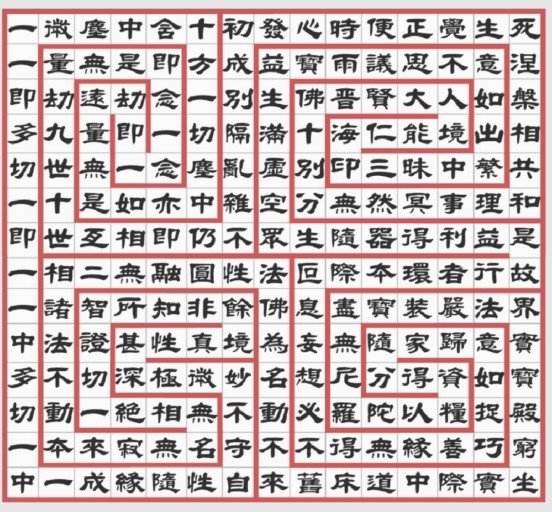 一微塵中含十初發心時便正覺生死
一量無是即方成益寶雨議思不意涅
即劫遠劫念一別生佛普賢大人如槃
多九量即一切隔滿十海仁能境出相
切世無一念塵亂虛別印三昧中繁共
一十是如亦中雜空分無然冥事理和
即世互相即仍不眾生隨器得利益是
一相二無融圓性法叵際本環者行故
一諸智所知非餘佛息盡寶裝嚴法界
中法證甚性真境為妄無隨家歸意實
多不切深極微妙名想尼分得資如寶
切動一絕相無不動必羅陀以糧捉殿
一本來寂無名守不不得無緣善巧窮
中一成緣隨性自來舊床道中際實坐